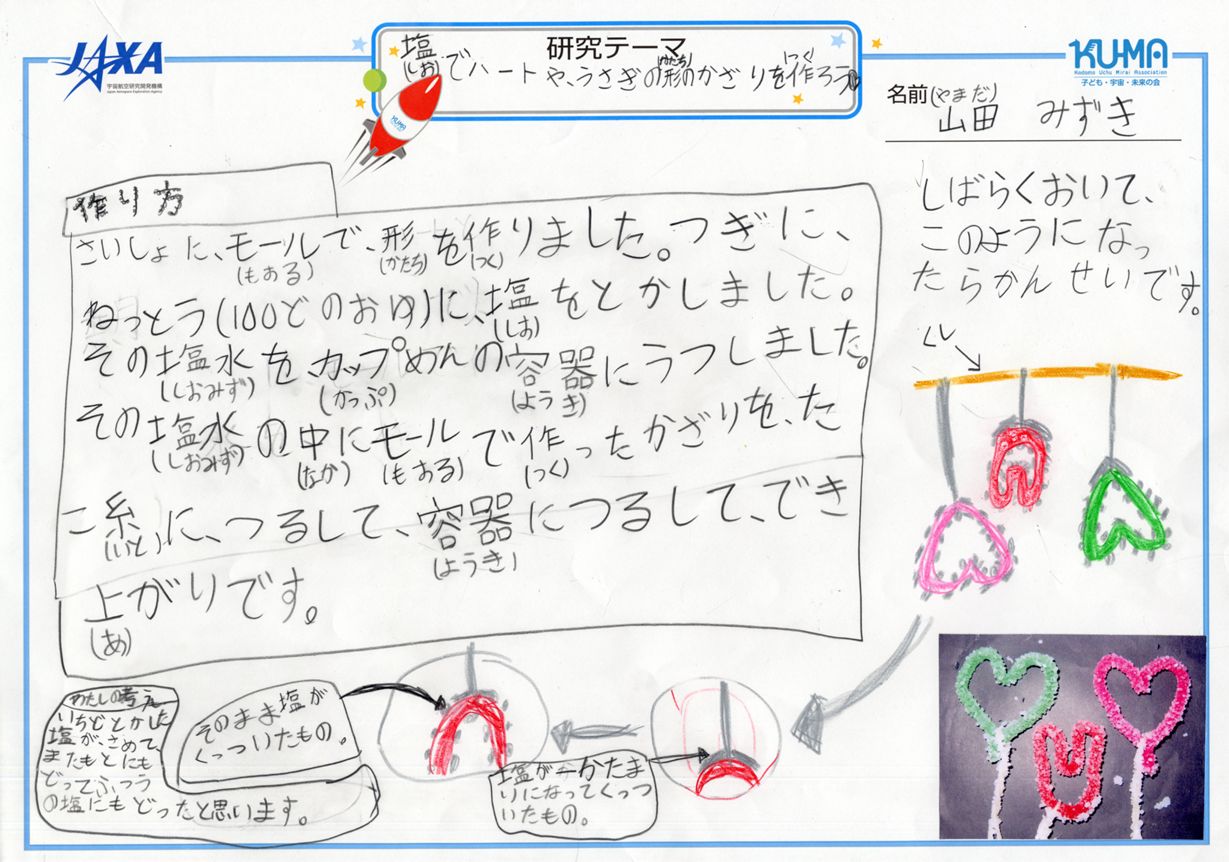 JAXA
宇宙航空研究開発機構
Japan Aerospace Exploration Agency
研究テーマ
塩(しお)でハートや、うさぎの形(かたち)のかざりを作(つく)ろう
KUMA
KUMA
Kodomo Uchu Mirai Association
子ども・宇宙・未来の会
名前
(やまだ)
山田 みずき
作り方
さいしょに、モールで、形を作りました。つぎに、
(もおる) (かたち) (つく)
ねっとう(100どのおゆ)に、塩をとかしました。
(しお)
その塩水をカップめんの容器にうつしました。
(しおみず) (かっぷ) (ようき)
その塩水の中にモールで作ったかざりを、た
(しおみず) (なか) (もおる) (つく)
こ糸に、つるして、容器につるして、でき
(いと) (ようき)
上がりです。
(あ)
しばらくおいて、
このようになっ
たらかんせいです。
わたしの考え
いちどとかした
塩が、さめて、
またもとにも
どってふつう
の塩にもどったと思います。
そのまま塩が
くっついたもの。
塩がかたま
りになってくっつ
いたもの。